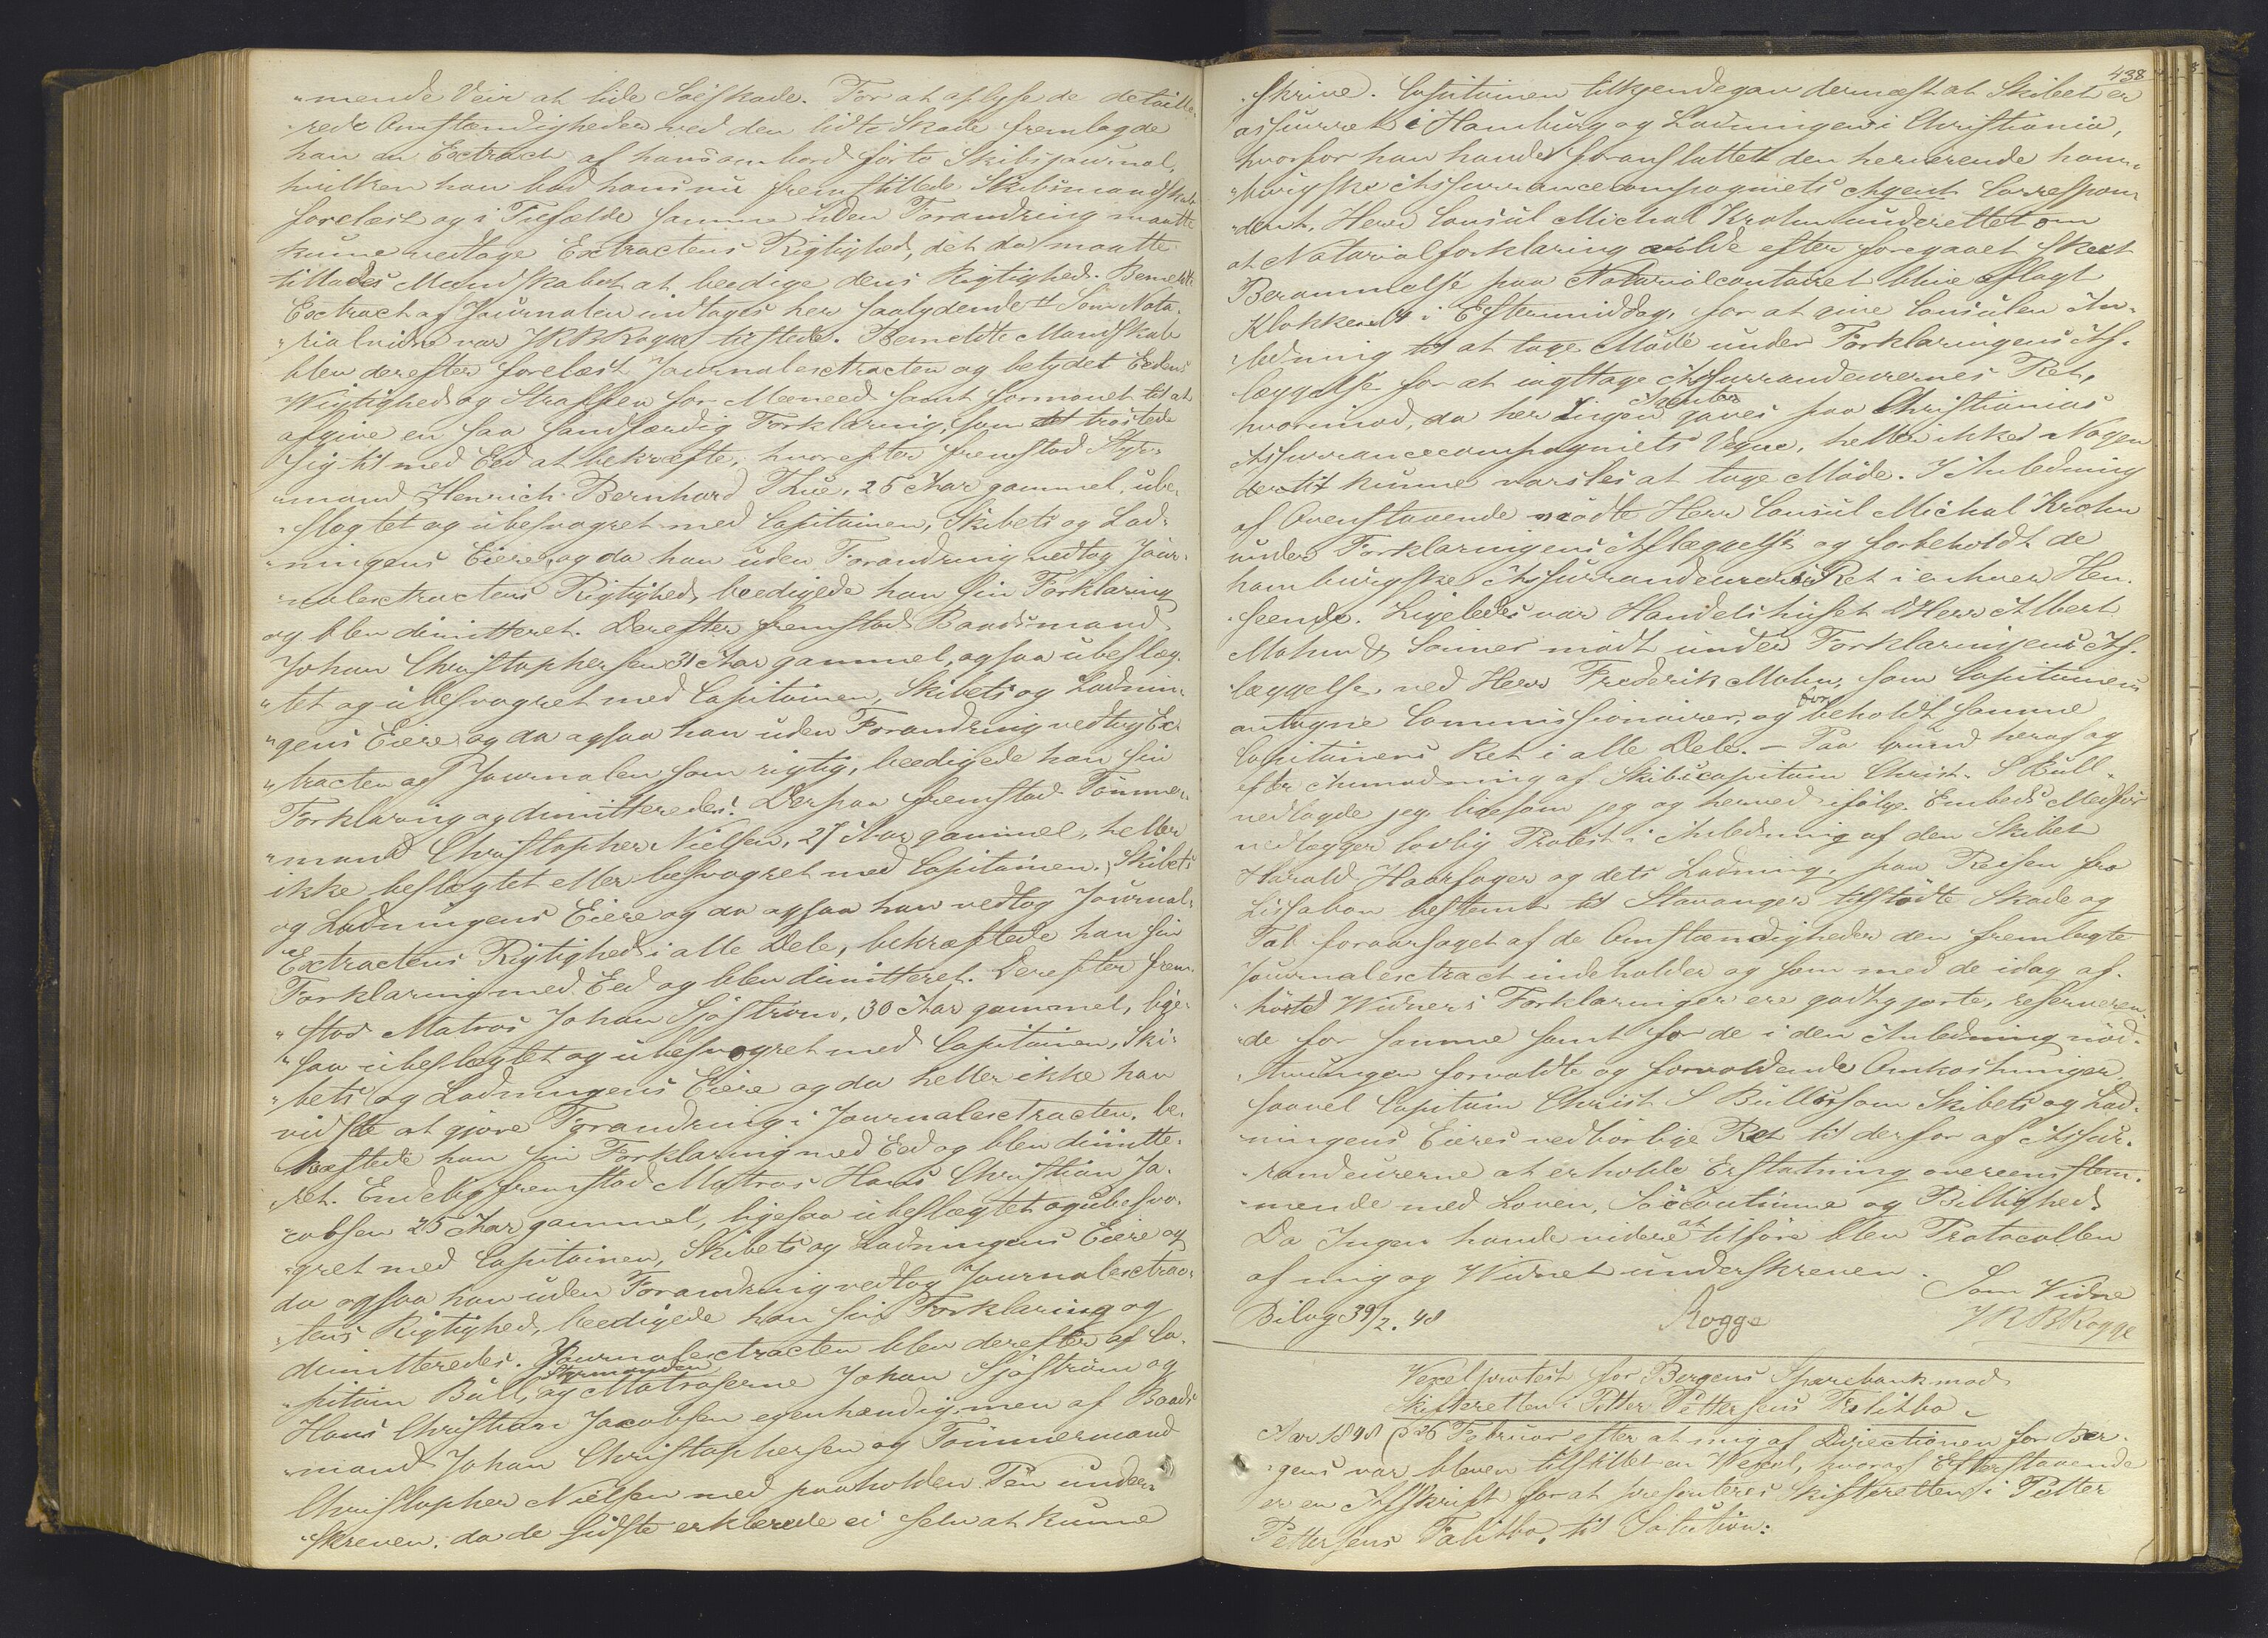 "mende Veir at lide Søeskade. For at oplyse de detaille-
"rede Omstændigheder ved den lidte Skade fremlagde
han en Extract af hans ombord førte Skibsjournal,
hvilken han bad hans nu fremstillede Skibsmandskab
forelæst og i Tilfælde samme uden Forandring maatte
kunne vedtage Extractens Rigtighed, det da maatte
tillades Mandskabet at beedige dens Rigtighed. Bemeldte
Extract af Journalen indtages her saalydende # Som Nota-
"rialvidne var JRBRogge tilstede. Bemeldte Mandskab
blev derefter forelæst Journalextracten og betydet Eedens
Vigtighed og Straffen for Meeneed samt formanet til at
afgive en saa sandfærdig Forklaring, som de trøstede
sig til med Eed at bekræfte, hvorefter fremstod Styr-
"mand Henrich Bernhard Thue, 25 Aar gammel, ube-
"slægtet og ubesvogret med Capitainen, Skibets og Lad-
"ningens Eiere, og da han uden Forandring vedtog Jour-
"nalextractens Rigtighed, beedigede han sin Forklaring
og blev dimitteret. Derefter fremstod Baadsmand
Johan Christophersen 31 Aar gammel, ogsaa ubeslæg-
"tet og ubesvogret med Capitainen, Skibets og Ladnin-
"gens Eiere og da ogsaa han uden Forandring vedtog Ex-
"tracten af Journalen som rigtig, beedigede han sin
Forklaring og dimitteredes. Derpaa fremstod Tømmer-
"mand Christopher Nielsen, 27 Aar gammel, heller
ikke beslægtet eller besvogret med Capitainen, Skibets
og Ladningens Eiere og da ogsaa han vedtog Journal-
Extractens Rigtighed i alle Dele, bekræftede han sin
Forklaring med Eed og blev dimitteret. Derefter frem-
"stod Matros Johan Sjøstrøm, 30 Aar gammel, lige-
"saa ubeslægtet og ubesvogret med Capitainen, Ski-
"bets og Ladningens Eiere og da heller ikke han
vidste at gjøre Forandring i Journalextracten, be-
kræftede han sin Forklaring med Eed og blev dimitte-
ret. Endelig fremstod Matros Hans Christian Ja-
"cobsen 25 Aar gammel, ligesaa ubeslægtet og ubesvo-
"gret med Capitainen, Skibets og Ladningens Eiere og
da ogsaa han uden Forandring vedtog Journalextrac-
"tens Rigtighed, beedigede han sin Forklaring og
dimitteredes. Journalextracten blev derefter af Ca-
"pitain Bull, Styrmanden og Matroserne Johan Sjøstrøm og
Hans Christian Jacobsen egenhændig, men af Baads-
"mand Johan Christophersen og Tømmermand
Christopher Nielsen med paaholden Pen under-
"skreven, da de sidste erklærede ei selv at kunne
438
skrive. Capitainen tilkjendegav dernæst at Skibet er
assureret i Hamburg og Ladningen i Christiania,
hvorfor han havde foranstaltet den herværende ham-
"burgske Assurancecompagniets Agent Correspon-
"dent, Herr Consul Michal Krohn underettet om
at Notarialforklaring vilde efter foregaaet skeet
Berammelse paa Notarialcontoiret blive aflagt
Klokken 4 i Eftermiddag, for at give Consulen An-
"ledning til at tage Møde under Forklaringens Af-
læggelse for at iagttage Assurandeurernes Ret,
hvorimod, da her Ingen Agenter haves paa Christianias
Assurancecompagniets Vegne, heller ikke Nogen
dertil kunne varsles at tage Møde. I Anledning
af Ovenstaaende mødte Herr Consul Michal Krohn
under Forklaringens Aflæggelse og forbeholdt de
hamburgske Assurandeurers Ret i enhver Hen-
"seende. Ligeledes var Handelshuset DHerr Albert
Mohn & Sønner mødt under Forklaringens Af-
"læggelse ved Herr Frederik Mohn, som Capitainens
antagne Commissionairer, og forbeholdt samme
Capitainens Ret i alle Dele. – Paa Grund heraf og
efter Anmodning af Skibscapitain Christ. S Bull
nedlagde jeg, ligesom jeg og herved ifølge Embeds Medfør
nedlægger lovlig Protest i Anledning af den Skibet
Harald Haarfager og dets Ladning, paa Reisen fra
Lissabon bestemt til Stavanger tilstødte Skade og
Tab foraarsaget af de Omstændigheder den fremlagte
Journalextract indeholder og som med de idag af-
"hørte Widners Forklaringer ere godtgjorte, reserveren-
"de for samme samt for de i den Anledning nød-
"tvungen forvoldte og forvoldende Omkostninger
saavel Capitain Christ. S Bull som Skibets og Lad-
"ningens Eieres vedbørlige Ret til derfor af Assur-
"randeurerne at erholde Erstatning overeenstem-
"mende med Loven, Søecoutume og Billighed.
Da Ingen havde videre at tilføre blev Protocollen
af mig og Widnet underskreven.
Som Vidne
Bilag 39/2. 48 Rogge JRBRogge
Vexelprotest for Bergens Sparebank mod
Skifteretten i Petter Pettersens Falitbo.
Aar 1848 d 26 Februar efter at mig af Directionen for Ber-
"gens var bleven tilstillet en Vexel, hvoraf Efterstaaende
er en Afskrift for at presenteres Skifteretten i Petter
Pettersens Falitbo, til Solution: